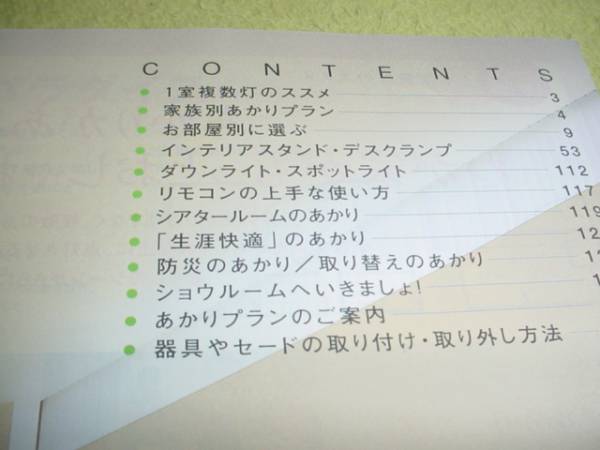 CONTENTS
1室複数灯のススメ 3
家族別あかりプラン 4
お部屋別に選ぶ 9
インテリアスタンド・デスクランプ 53
ダウンライト・スポットライト 112
リモコンの上手な使い方 117
シアタールームのあかり 119
「生涯快適」のあかり 12
防災のあかり／取り替えのあかり
ショウルームへいきましょ!
あかりプランのご案内
器具やセードの取り付け・取り外し方法